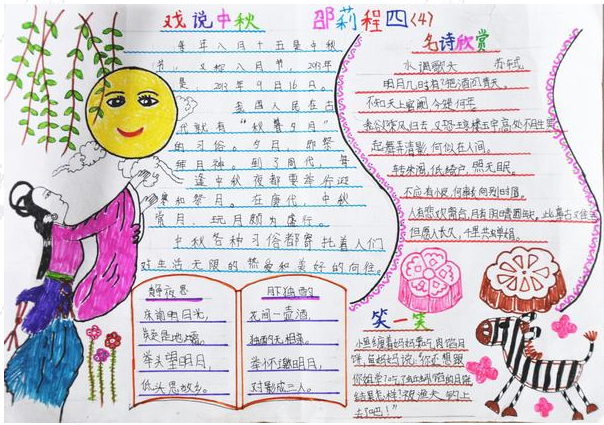 戏说中秋
邵莉程四(4)
每年八月十五是中秋
节，又称八月节，2013年
是 2013年9月16日。
我国人民在古
代就有“秋暮夕月”
的习俗。夕月，即祭
拜月神。到了周代，每
逢中秋夜都要举行迎
寒和祭月。在唐代，中秋
赏月、玩月颇为盛行。
中秋各种习俗都寄托着人们
对生活无限的热爱和美好的向往。
名诗欣赏
水调歌头 苏轼
明月几时有？把酒问青天。
不知天上宫阙，今夕是何年
我欲乘风归去，又恐琼楼玉宇，高处不胜寒
起舞弄清影，何似在人间。
转朱阁，低绮户，照无眠。
不应有恨，何事长向别时圆。
人有悲欢离合，月有阴晴圆缺，此事古难全
但愿人长久，千里共婵娟。
静夜思
床前明月光，
疑是地上霜。
举头望明月，
低头思故乡。
月下独酌
花间一壶酒，
独酌无相亲。
举杯邀明月，
对影成三人。
笑一笑
小鱼缠着妈妈要吃肉馅月
饼，鱼妈妈说：“你还想跟
你姐学？吃了蚯蚓馅的月饼，
结果怎样？被渔夫钓上
去了吧！”